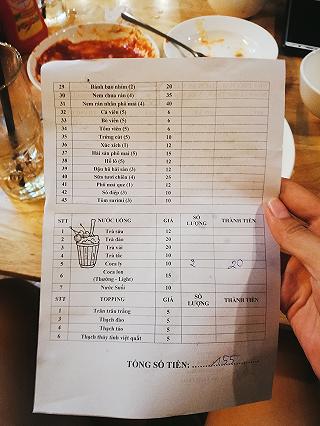 29 Bánh bao nhím (2) 20
30 Nem chua rán (4) 35
31 Nem rán nhân phô mai (4) 40
32 Cá viên (5) 6
33 Bò viên (5) 6
34 Tôm viên (5) 6
35 Trứng cút (5) 10
36 Xúc xích (1) 12
37 Hải sản phô mai (5) 15
38 Hồ lô (5) 12
39 Đậu hũ hải sản (3) 12
40 Sữa tươi chiên (4) 25
41 Phô mai que (1) 12
42 Sò điệp (3) 10
43 Tôm surimi (3) 10
STT NƯỚC UỐNG GIÁ SỐ LƯỢNG THÀNH TIỀN
1 Trà sữa 12
2 Trà đào 20
3 Trà vải 20
4 Trà tắc 10
5 Coca ly 10 2 20
6 Coca lon (Thường - Light) 15
7 Nước Suối 10
STT TOPPING GIÁ SỐ LƯỢNG THÀNH TIỀN
1 Trân trâu trắng 5
3 Thạch đào 5
4 Thạch táo 5
6 Thạch thủy tinh việt quất 5
TỔNG SỐ TIỀN: 155